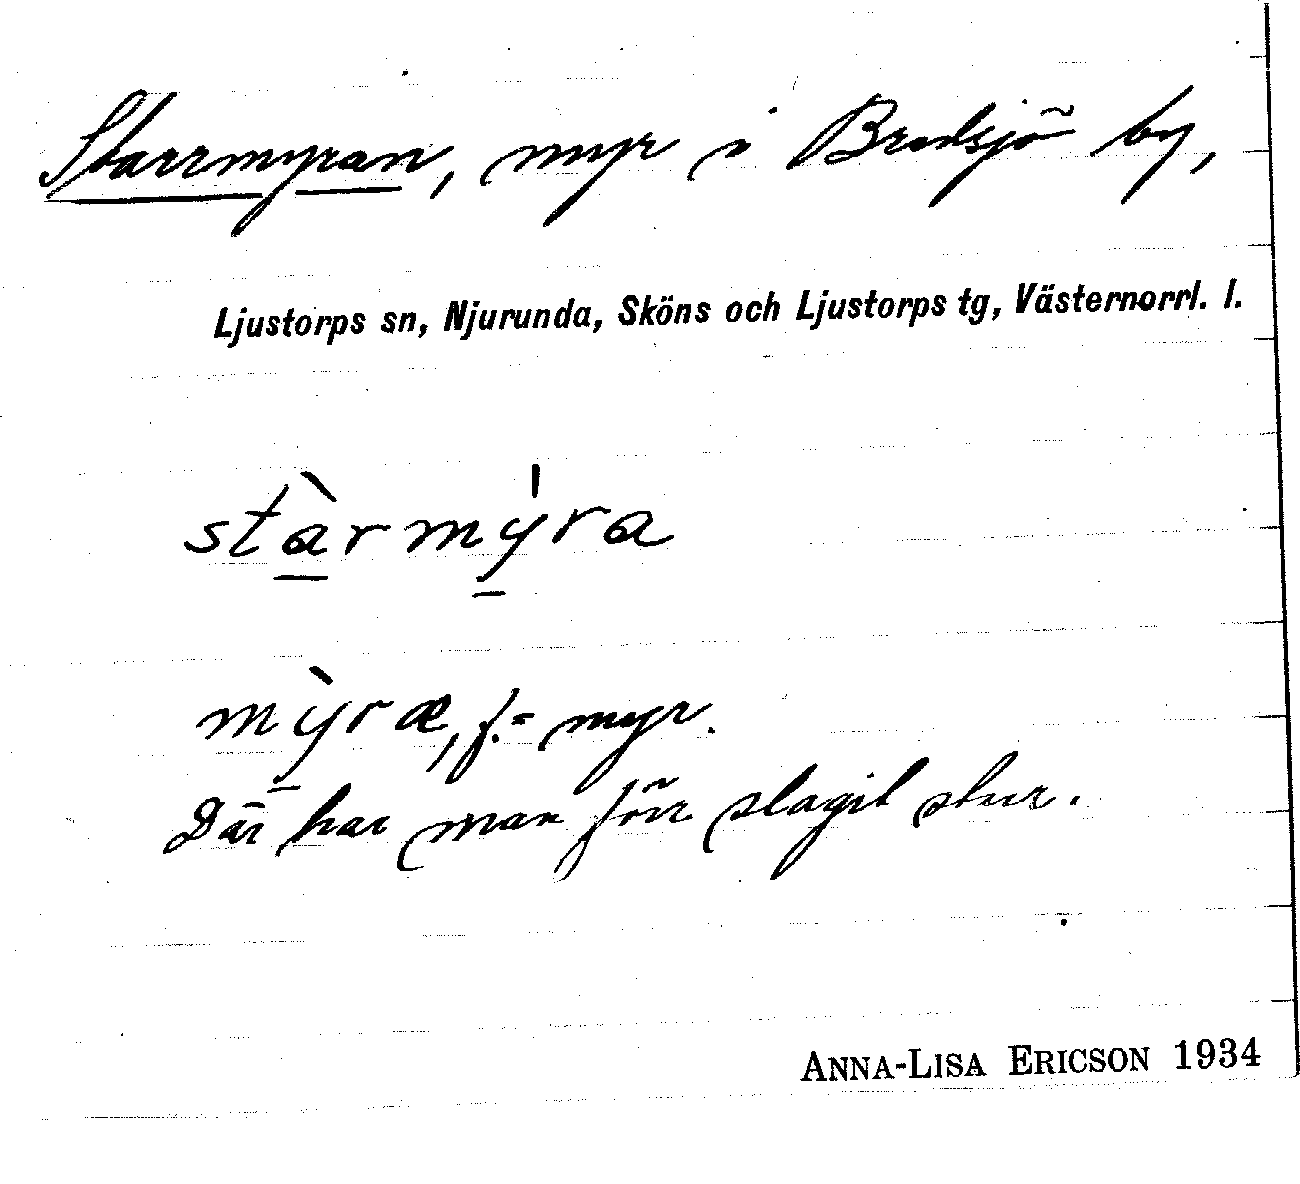 Starrmyran, myr i Bredsjö by,
Ljustorps sn, Njurunda, Sköns och Ljustorps tg, Västernorrl. l.
stàrmy̍ra
my̍̀ræ, f. = myr.
Där har man förr slagit starr.
ANNA-LISA ERICSON 1934